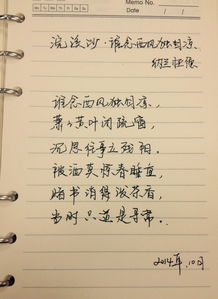 Memo No.
Date / /
浣溪沙·谁念西风独自凉
纳兰性德
谁念西风独自凉,
萧萧黄叶闭疏窗,
沉思往事立残阳.
被酒莫惊春睡重,
赌书消得泼茶香,
当时只道是寻常.
2014年.10月